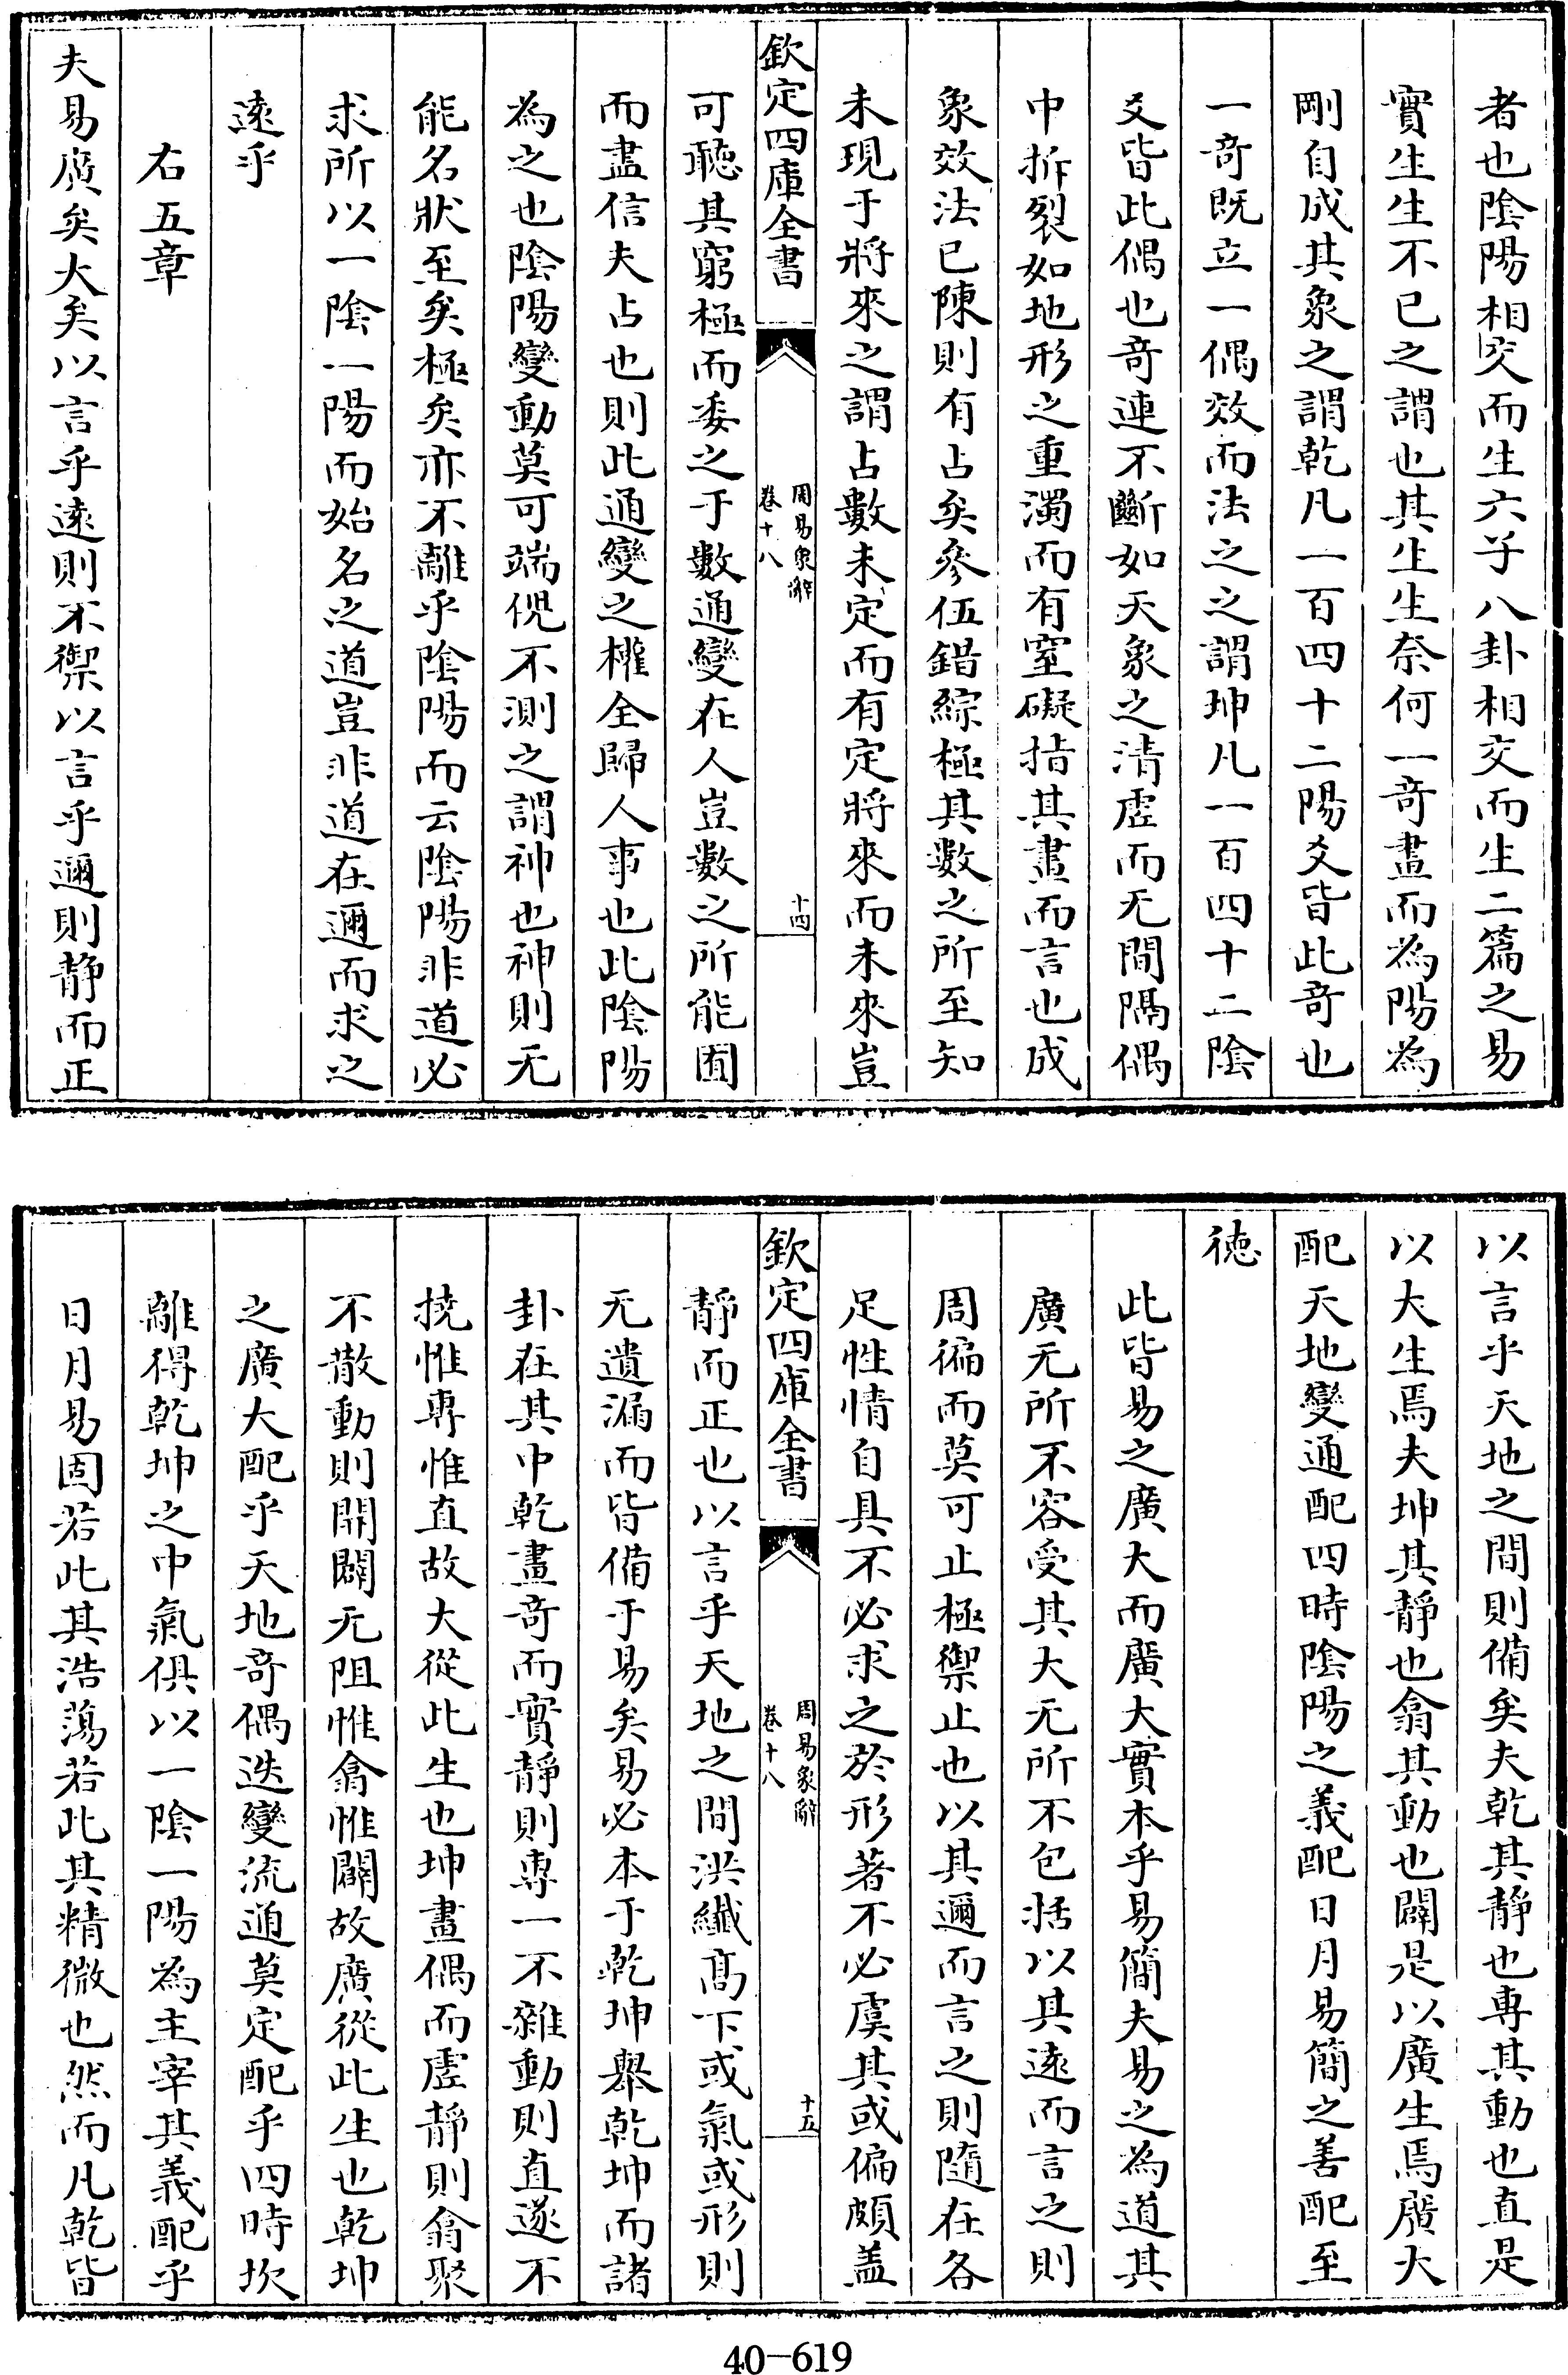 者也陰陽相交而生六子八卦相交而生二篇之易
實生生不已之謂也其生生奈何一奇畫而為陽為
剛自成其象之謂乾凡一百四十二陽爻皆此奇也
一奇既立一偶效而法之之謂坤凡一百四十二陰
爻皆此偶也奇連不斷如天象之清虛而无間隔偶
中拆裂如地形之重濁而有窒礙指其畫而言也成
象效法已陳則有占矣參伍錯綜極其數之所至知
未現于將來之謂占數未定而有定將來而未來豈
欽定四庫全書
周易象辭
卷十八
十四
可聽其窮極而委之于數通變在人豈數之所能囿
而盡信夫占也則此通變之權全歸人事也此陰陽
為之也陰陽變動莫可端倪不測之謂神也神則无
能名狀至矣極矣亦不離乎陰陽而云陰陽非道必
求所以一陰一陽而始名之道豈非道在邇而求之
遠乎
右五章
夫易廣矣大矣以言乎遠則不禦以言乎邇則静而正
以言乎天地之間則備矣夫乾其静也専其動也直是
以大生焉夫坤其静也翕其動也闢是以廣生焉廣大
配天地變通配四時陰陽之義配日月易簡之善配至
徳
此皆易之廣大而廣大實本乎易簡夫易之為道其
廣无所不容受其大无所不包括以其遠而言之則
周徧而莫可止極禦止也以其邇而言之則隨在各
足性情自具不必求之於形著不必虞其或偏頗盖
欽定四庫全書
周易象辭
卷十八
十五
静而正也以言乎天地之間洪纖髙下或氣或形則
无遺漏而皆備于易矣易必本于乾坤舉乾坤而諸
卦在其中乾畫奇而實静則専一不雜動則直遂不
撓惟専惟直故大從此生也坤畫偶而虛静則翕聚
不散動則開闢无阻惟翕惟闢故廣從此生也乾坤
之廣大配乎天地奇偶迭變流通莫定配乎四時坎
離得乾坤之中氣俱以一陰一陽為主宰其義配乎
日月易固若此其浩蕩若此其精微也然而凡乾皆
40-619